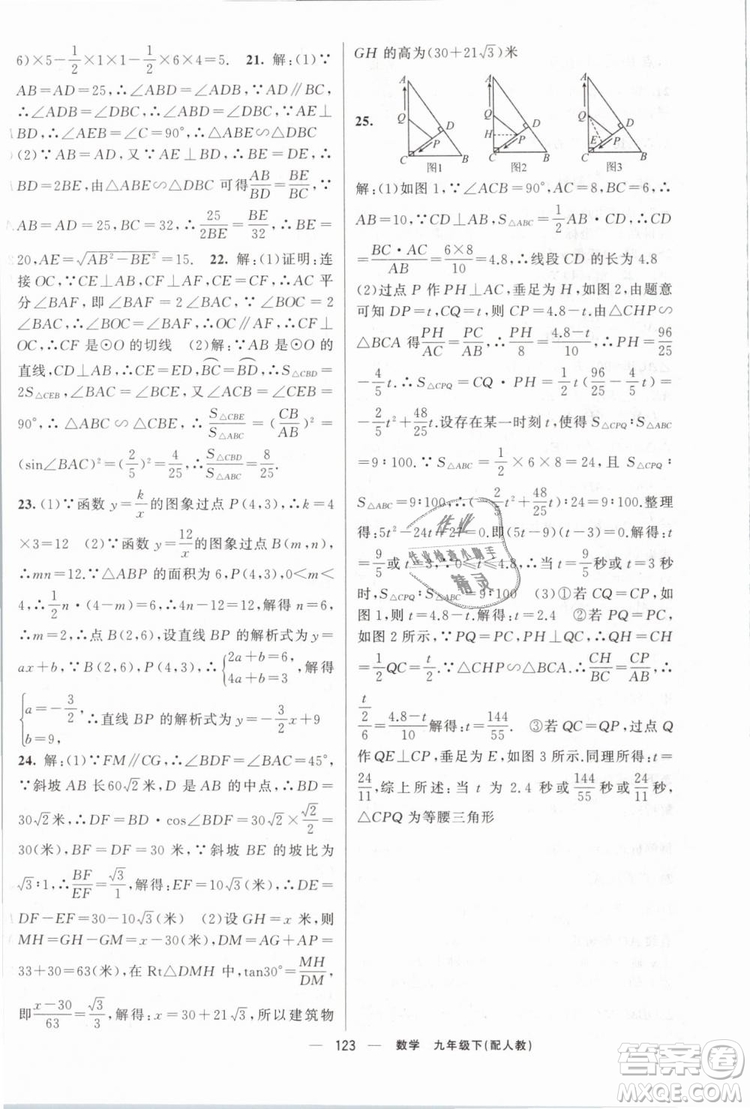 6)×5-1/2×1×1-1/2×6×2=5/2. 21. 解：(1)∵
AB=AD=25,∴∠ABD=∠ADB,∵AD∥BC,
∴∠ADB=∠DBC,∴∠ABD=∠DBC,∵AE⊥
BD,∴∠AEB=∠C=90°,∴△ABE∽△DBC
(2)∵AB=AD,又AE⊥BD,∴BE=DE,∴
BD=2BE,由△ABE∽△DBC可得AB/BD=BE/BC,
∵AB=AD=25,BC=32,∴25/2BE=BE/32,∴BE=
20,AE=√(AB²-BE²)=15. 22. 解：(1)证明：连
接OC,∵CE⊥AB,CF⊥AF,CE=CF,∴AC平
分∠BAF,即∠BAF=2∠BAC,∵∠BOC=2
∠BAC,∴∠BOC=∠BAF,∴OC∥AF,∴CF⊥
OC.∴CF是⊙O的切线 (2)解：∵AB是⊙O的
直线,CD⊥AB,∴CE=ED,BC=BD,∴S△CBD=
2S△CEB,∠BAC=∠BCE,∠ACB=∠CEB=
90°,∴△ABC∽△CBE,∴S△CBE/S△ABC=(CB/AB)²=
(sin∠BAC)²=(2/5)²=4/25,∴S△CBD/S△ABC=8/25.
23.(1)∵函数y=k/x的图象过点P(4,3),∴k=4
×3=12 (2)∵函数y=12/x的图象过点B(m,n),
∴mn=12.∵△ABP的面积为6,P(4,3),0<m<
4,∴1/2n·(4-m)=6,∴4n-12=12,解得n=6,
∴m=2,∴点B(2,6),设直线BP的解析式为y=
ax+b,∵B(2,6),P(4,3),∴{2a+b=6, 4a+b=3, 解得
{a=-3/2, b=9, ∴直线BP的解析式为y=-3/2x+9
24. 解：(1)∵FM∥CG,∴∠BDF=∠BAC=45°,
∵斜坡AB长60√2米,D是AB的中点,∴BD=
30√2米,∴DF=BD·cos∠BDF=30√2×√2/2=
30(米),BF=DF=30米,∵斜坡BE的坡比为
√3∶1,∴BF/EF=√3/1,解得：EF=10√3(米),∴DE=
DF-EF=30-10√3(米) (2)设GH=x米,则
MH=GH-GM=x-30(米),DM=AG+AP=
33+30=63(米),在Rt△DMH中,tan30°=MH/DM,
即(x-30)/63=√3/3,解得：x=30+21√3,所以建筑物
GH的高为(30+21√3)米
25.
A Q D P C B 图1
A Q D H P C B 图2
A Q D E P C B 图3
解：(1)如图1,∵∠ACB=90°,AC=8,BC=6,∴
AB=10,∵CD⊥AB,∴S△ABC=1/2AB·CD,∴CD
=BC·AC/AB=6×8/10=4.8,∴线段CD的长为4.8
(2)过点P作PH⊥AC,垂足为H,如图2,由题意
可知DP=t,CQ=t,则CP=4.8-t,由△CHP∽
△BCA得PH/AC=PC/AB,∴PH/8=(4.8-t)/10,∴PH=96/25
-4/5t,∴S△CPQ=CQ·PH=1/2t(96/25-4/5t)=
-2/5t²+48/25t.设存在某一时刻t,使得S△CPQ∶S△ABC
=9∶100.∵S△ABC=1/2×6×8=24,且S△CPQ∶
S△ABC=9∶100,∴(-2/5t²+48/25t)∶24=9∶100.整理
得：5t²-24t+27=0.即(5t-9)(t-3)=0.解得：t=
9/5或t=3,∵0≤t≤4.8,∴当t=9/5秒或t=3秒
时,S△CPQ∶S△ABC=9∶100 (3)①若CQ=CP,如
图1,则t=4.8-t,解得：t=2.4 ②若PQ=PC,
如图2所示,∵PQ=PC,PH⊥QC,∴QH=CH
=1/2QC=t/2,∵△CHP∽△BCA.∴CH/BC=CP/AB,∴
(t/2)/6=(4.8-t)/10 解得；t=144/55. ③若QC=QP,过点Q
作QE⊥CP,垂足为E,如图3所示.同理所得：t=
24/11,综上所述：当t为2.4秒或144/55秒或24/11秒时,
△CPQ为等腰三角形
作业
作业检查小助手
精灵
— 123 — 数学 九年级下(配人教)
答案圈
MXQE.COM